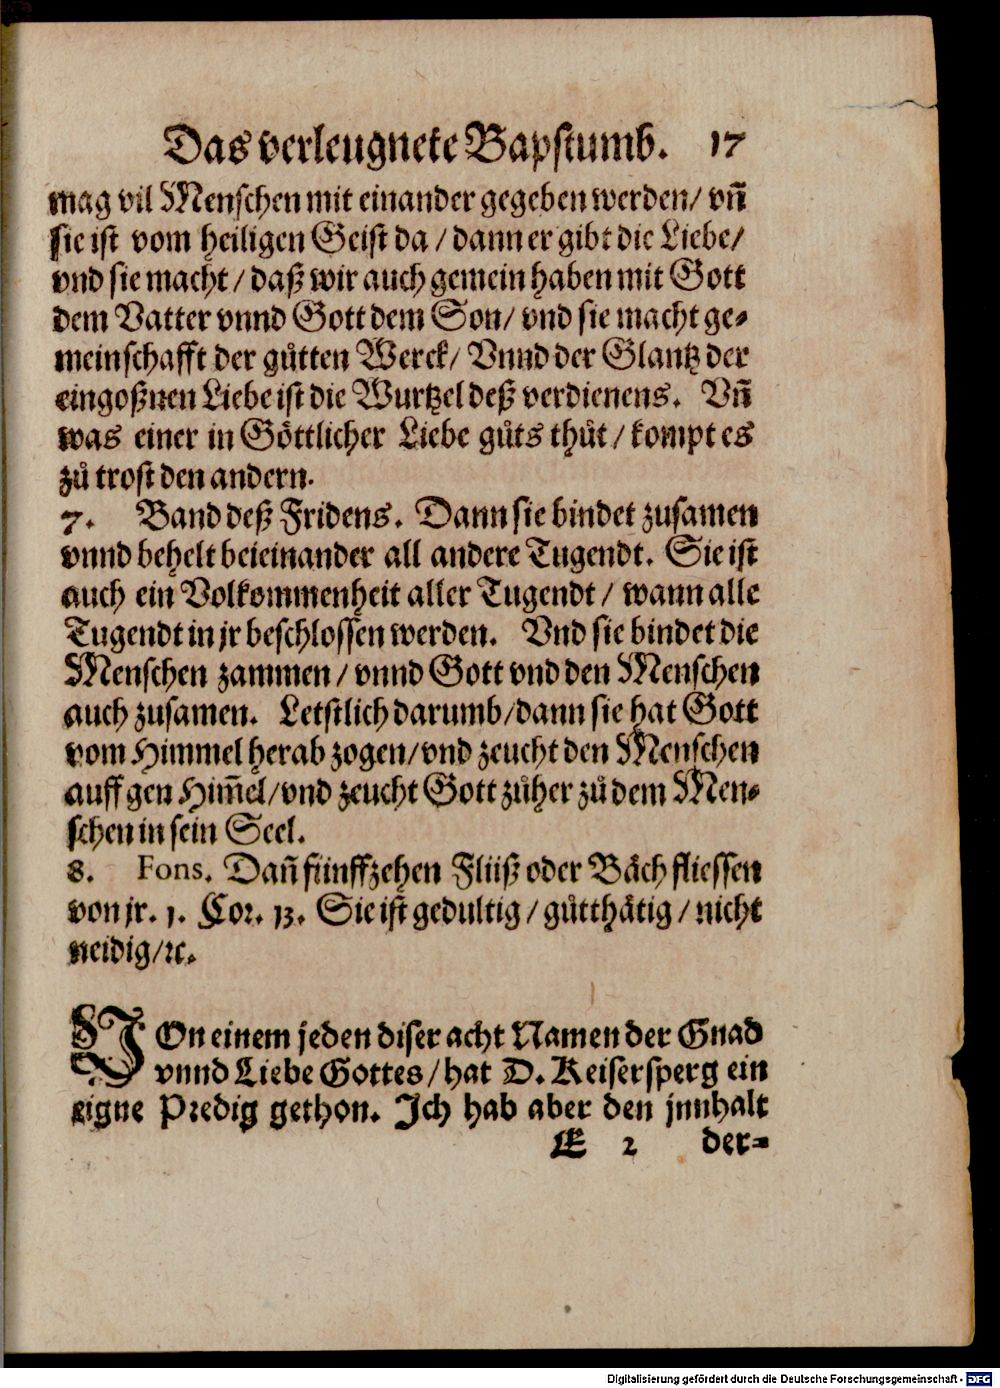 Das verleugnete Bapstumb. 17
mag vil Menschen mit einander gegeben werden/ vn̄
sie ist vom heiligen Geist da / dann er gibt die Liebe/
vnd sie macht / daß wir auch gemein haben mit Gott
dem Vatter vnnd Gott dem Son/ vnd sie macht ge-
meinschafft der gůtten Werck/ Vnnd der Glantz der
eingoßnen Liebe ist die Wurtzel deß verdienens. Vn̄
was einer in Göttlicher Liebe gůts thůt / kompt es
zů trost den andern.
7. Band deß Fridens. Dann sie bindet zusamen
vnnd behelt beieinander all andere Tugendt. Sie ist
auch ein Volkommenheit aller Tugendt / wann alle
Tugendt in jr beschlossen werden. Vnd sie bindet die
Menschen zammen / vnnd Gott vnd den Menschen
auch zusamen. Letstlich darumb/dann sie hat Gott
vom Himmel herab zogen/vnd zeucht den Menschen
auff gen Him̄el/vnd zeucht Gott zůher zů dem Men-
schen in sein Seel.
8. Fons. Dan̄ fünffzehen Flüß oder Bäch fliessen
von jr. 1. Cor. 13. Sie ist gedultig / gůtthätig / nicht
neidig/ꝛc.
VOn einem jeden diser acht Namen der Gnad
vnnd Liebe Gottes/hat D. Keisersperg ein
eigne Predig gethon. Ich hab aber den jnnhalt
E 2 der-
Digitalisierung gefördert durch die Deutsche Forschungsgemeinschaft - DFG